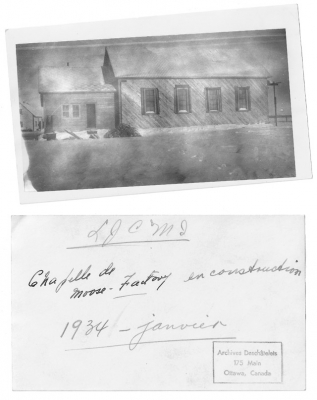 L J C M I
Chapelle de
Moose-Factory en construction
1934 - janvier
Archives Deschâtelets
175 Main
Ottawa, Canada